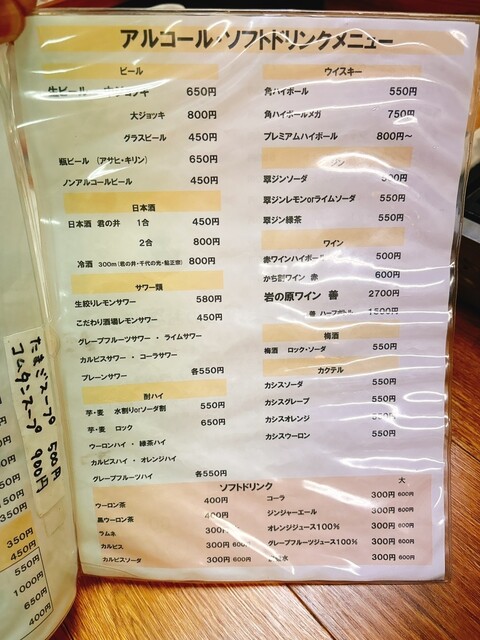 アルコール・ソフトドリンクメニュー
ビール
生ビール 中ジョッキ 650円
大ジョッキ 800円
グラスビール 450円
瓶ビール (アサヒ・キリン) 650円
ノンアルコールビール 450円
日本酒
日本酒 君の井 1合 450円
2合 800円
冷酒 300m(君の井・千代の光・鮎正宗) 800円
サワー類
生絞りレモンサワー 580円
こだわり酒場レモンサワー 450円
グレープフルーツサワー ・ ライムサワー
カルピスサワー ・ コーラサワー
プレーンサワー 各550円
酎ハイ
芋・麦 水割りorソーダ割 550円
芋・麦 ロック 650円
ウーロンハイ ・ 緑茶ハイ
カルピスハイ ・ オレンジハイ
グレープフルーツハイ 各550円
ウイスキー
角ハイボール 550円
角ハイボールメガ 750円
プレミアムハイボール 800円~
ジン
翠ジンソーダ
翠ジンレモンorライムソーダ 550円
翠ジン緑茶 550円
ワイン
赤ワインハイボール 500円
かち割ワイン 赤 600円
岩の原ワイン 善 2700円
善 ハーフボトル 1500円
梅酒
梅酒 ロック・ソーダ 550円
カクテル
カシスソーダ 550円
カシスグレープ 550円
カシスオレンジ 550円
カシスウーロン 550円
ソフトドリンク
大
ウーロン茶 400円
黒ウーロン茶 400円
ラムネ 300円
カルピス 300円 600円
カルピスソーダ 300円 600円
コーラ 300円 600円
ジンジャーエール 300円 600円
オレンジジュース100% 300円 600円
グレープフルーツジュース100% 300円 600円
300円 600円
たまごスープ 500円
コムタンスープ 900円
350円
450円
550円
1000円
650円
400円